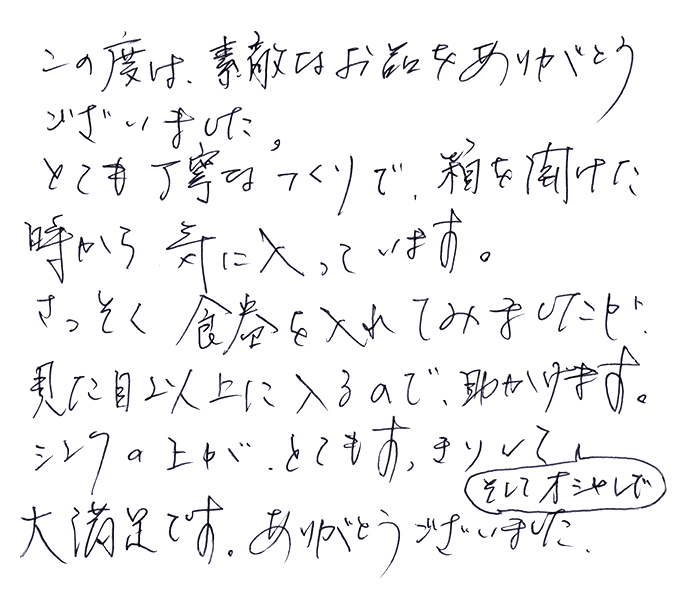 この度は、素敵なお品をありがとう
ございました。
とても丁寧なつくりで、箱を開けた
時から気に入っています。
さっそく食器を入れてみましたが、
見た目以上に入るので、助かります。
シンクの上が、とてもすっきりして
そしてオシャレで
大満足です。ありがとうございました。